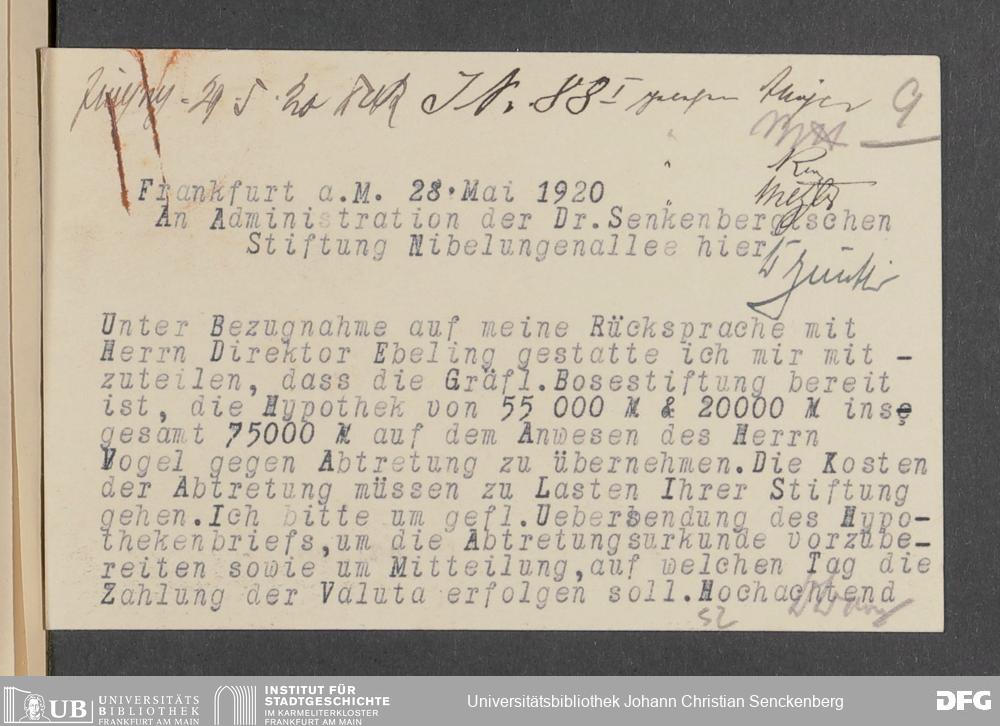 29 5. 20 J N. 88 I 9
Frankfurt a.M. 28.Mai 1920
An Administration der Dr.Senkenbergischen
Stiftung Nibelungenallee hier
Unter Bezugnahme auf meine Rücksprache mit
Herrn Direktor Ebeling gestatte ich mir mit -
zuteilen, dass die Gräfl.Bosestiftung bereit
ist, die Hypothek von 55 000 M & 20000 M inse
gesamt 75000 M auf dem Anwesen des Herrn
Vogel gegen Abtretung zu übernehmen.Die Kosten
der Abtretung müssen zu Lasten Ihrer Stiftung
gehen.Ich bitte um gefl.Uebersendung des Hypo-
thekenbriefs,um die Abtretungsurkunde vorzube-
reiten sowie um Mitteilung,auf welchen Tag die
Zahlung der Valuta erfolgen soll.Hochachtend
52
UB UNIVERSITÄTS
BIBLIOTHEK
FRANKFURT AM MAIN
INSTITUT FÜR
STADTGESCHICHTE
IM KARMELITERKLOSTER
FRANKFURT AM MAIN
Universitätsbibliothek Johann Christian Senckenberg
DFG